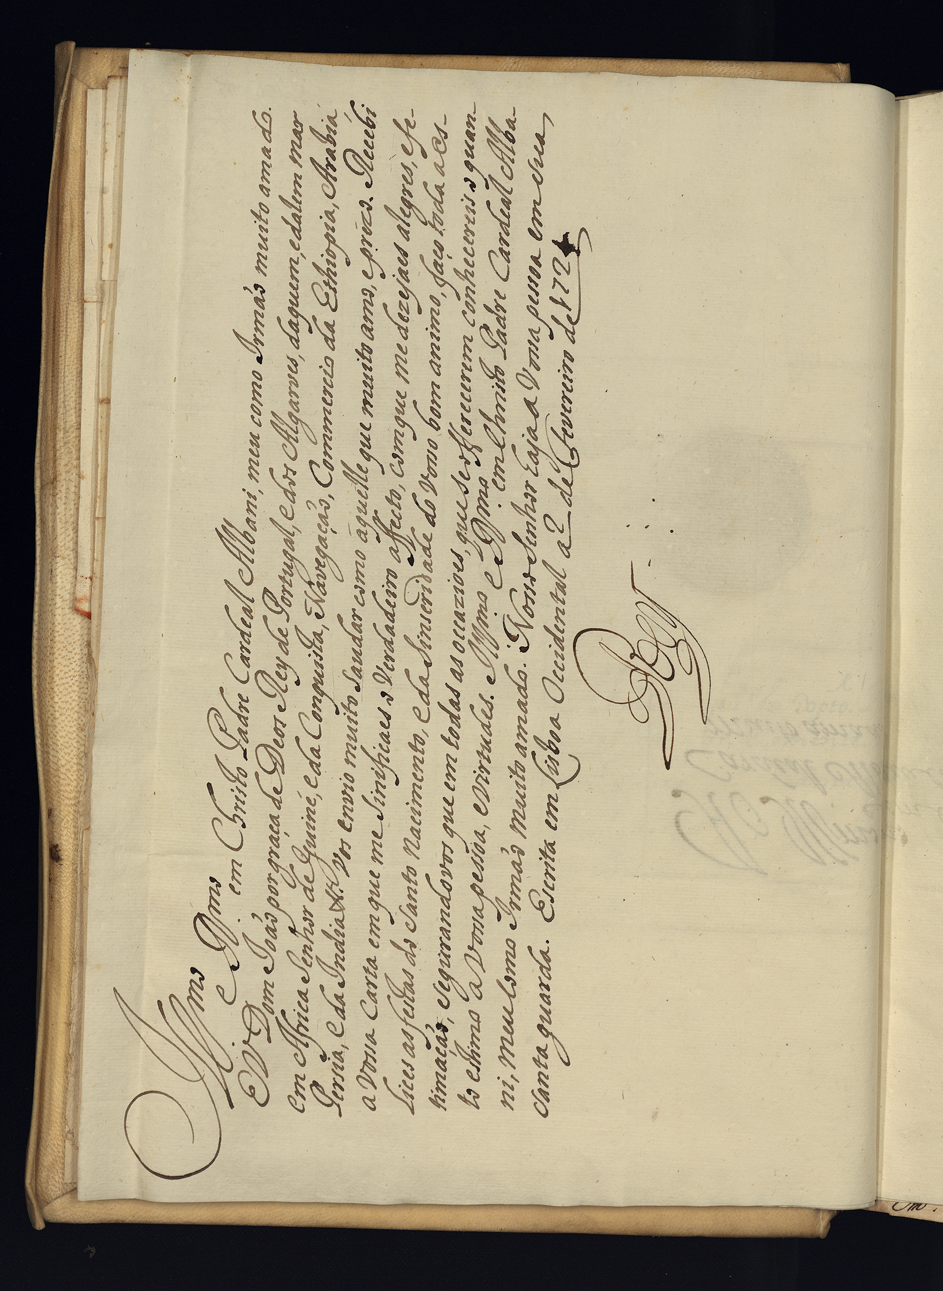 Illmo e Rmo em Christo Padre Cardeal Albani, meu como Irmaõ muito amado.
EV Dom Joaõ por graça de Deos Rey de Portugal, e dos Algarves, daquem, e dalem mar
em Africa Senhor de Guiné, e da Conquista, Navegaçaõ, Commercio da Ethiopia, Arabia
Persia, e da India &ª. Vos envio muito saudar como aquelle que muito amo, e prezo. Recebi
a vossa Carta em que me sinificaes o verdadeiro affecto, com que me dezejaes alegres, e fe-
lices as festas do Santo Nacimento, e da sinseridade do vosso bom animo, faço toda a es-
timaçaõ, segurandovos que em todas as occazioes, que se offerecerem conhecereis o quan-
to estimo a vossa pessoa, e virtudes. Illmo e Rmo em Christo Padre Cardeal Alba-
ni, meu como Irmaõ muito amado. Nosso Senhor haja a vossa pessoa em sua
santa guarda. Escrita em Lisboa Occidental a 2 de Fevereiro de 172
ElRey